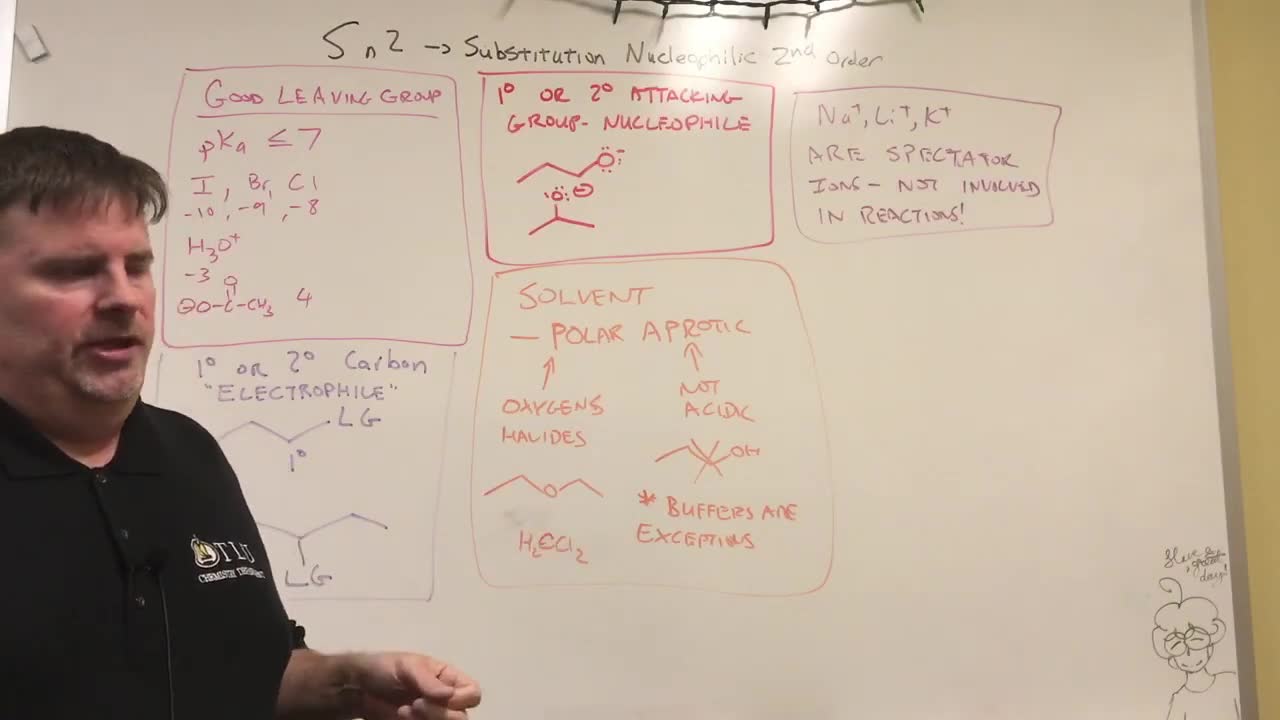 Sn2 → Substitution Nucleophilic 2nd Order
GOOD LEAVING GROUP
pKa ≤ 7
I, Br, Cl
-10, -9, -8
H3O+
-3
O
⊖O-C-CH3 4
1° OR 2° Carbon
"ELECTROPHILE"
LG
1°
LG
1° OR 2° ATTACKING
GROUP- NUCLEOPHILE
:Ö:-
:Ö:⊖
Na+, Li+, K+
ARE SPECTATOR
IONS - NOT INVOLVED
IN REACTIONS!
SOLVENT
— POLAR APROTIC
OXYGENS
HALIDES
NOT
ACIDIC
OH
O
H2CCl2
* BUFFERS ARE
EXCEPTIONS
TLU
CHEMISTRY
Have
great
day!